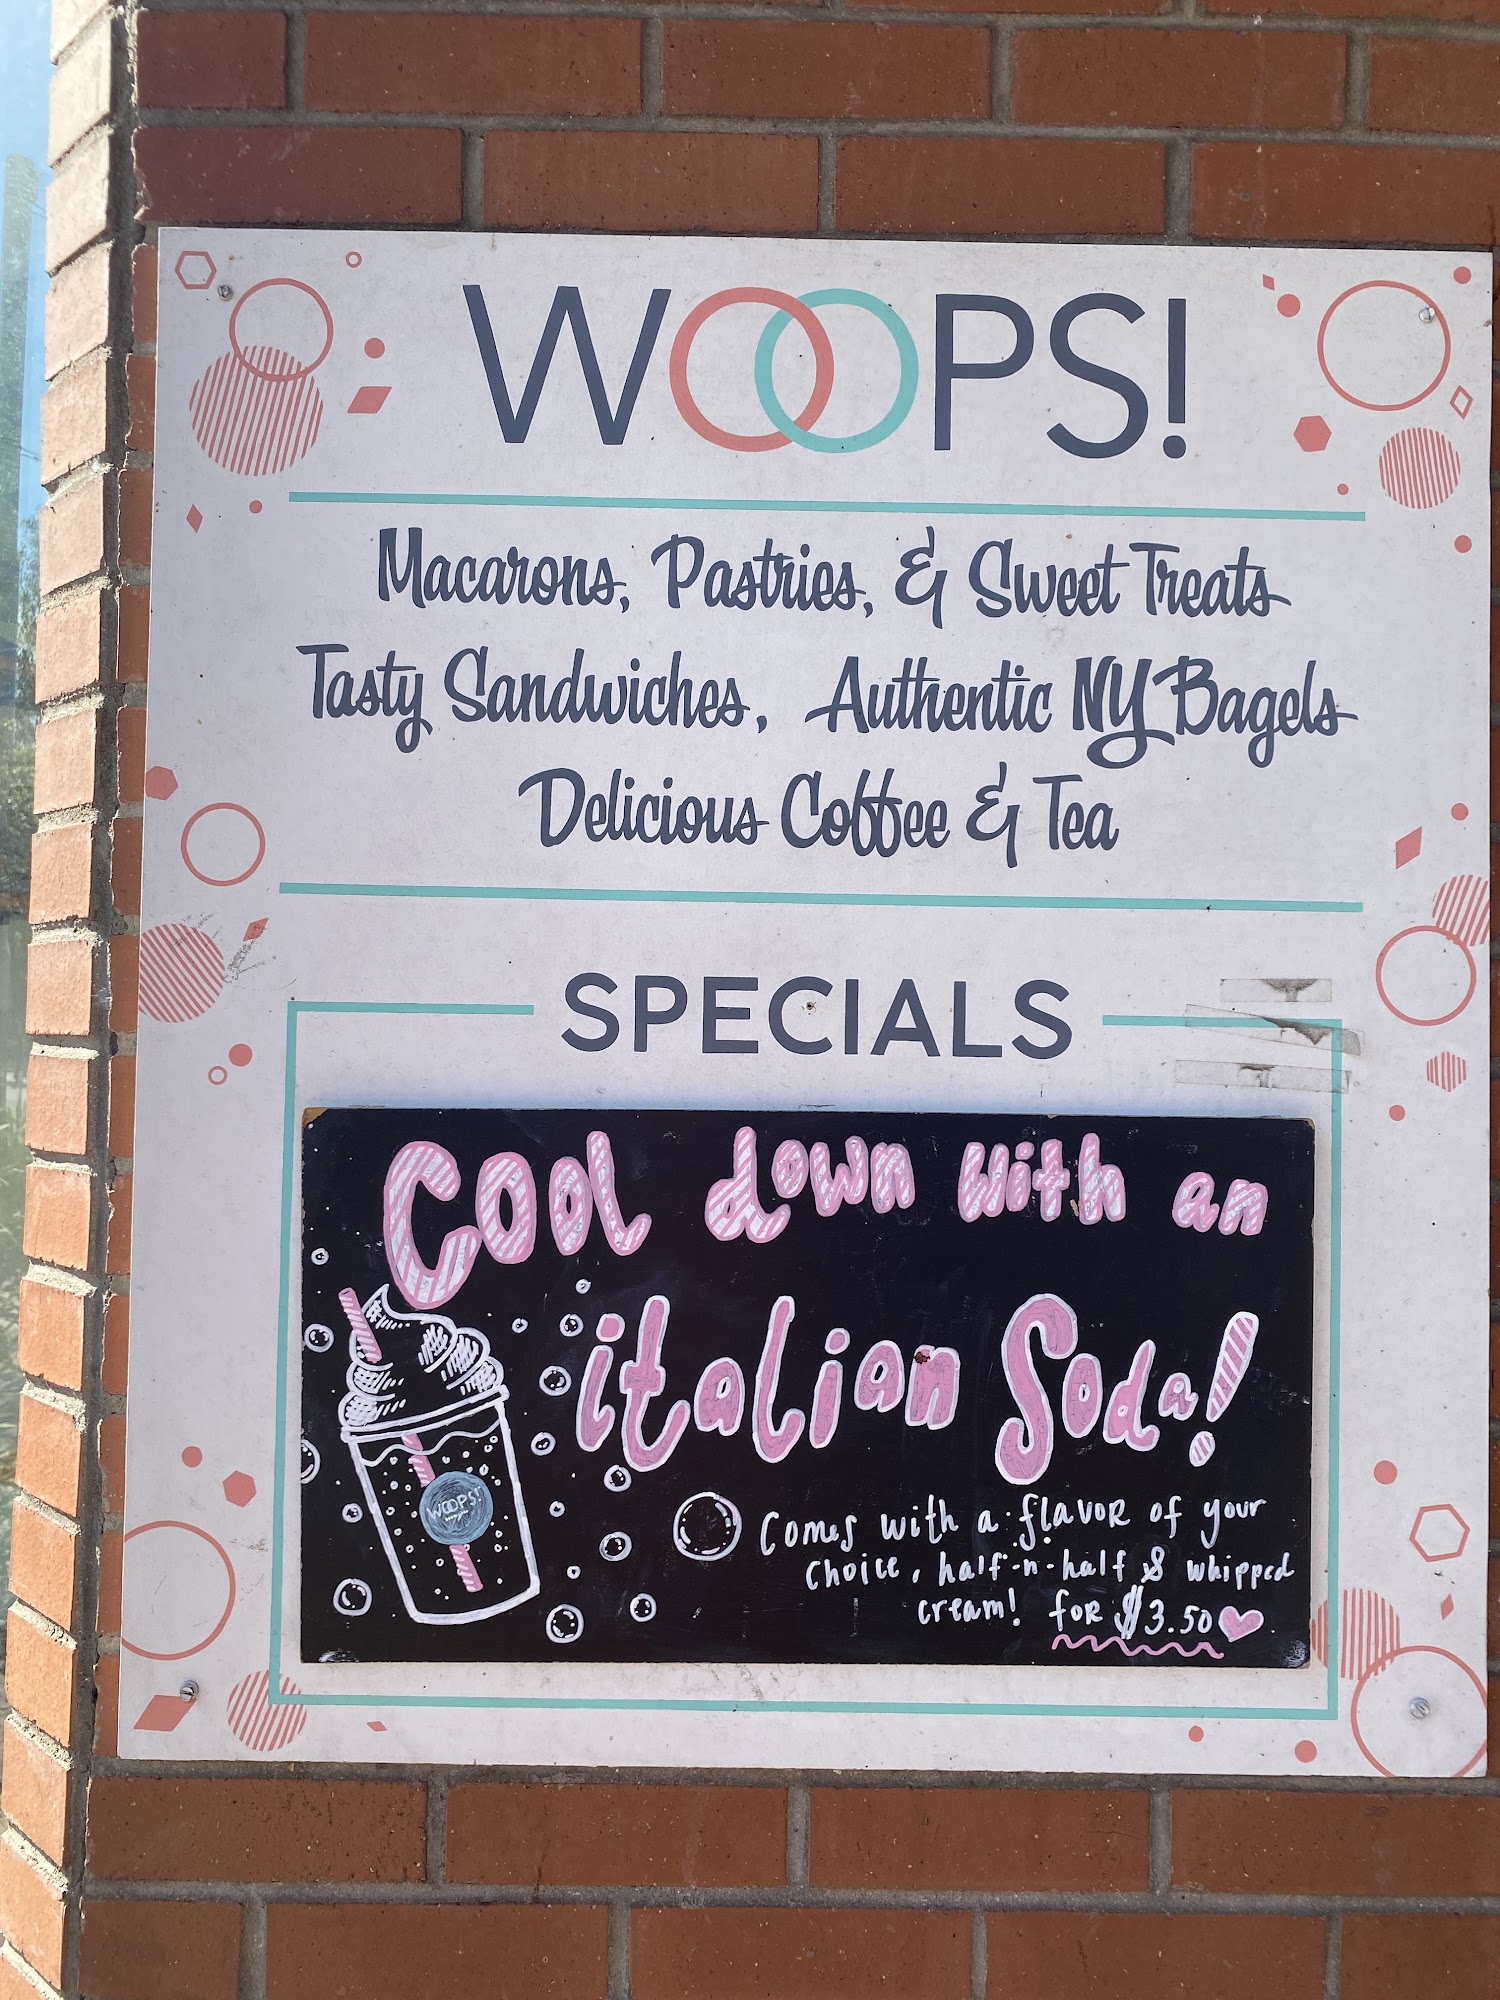 WOOPS!
Macarons, Pastries, & Sweet Treats
Tasty Sandwiches, Authentic NY Bagels
Delicious Coffee & Tea
SPECIALS
Cool down with an
italian Soda!
WOOPS!
Comes with a flavor of your
choice, half-n-half & whipped
cream! for $3.50